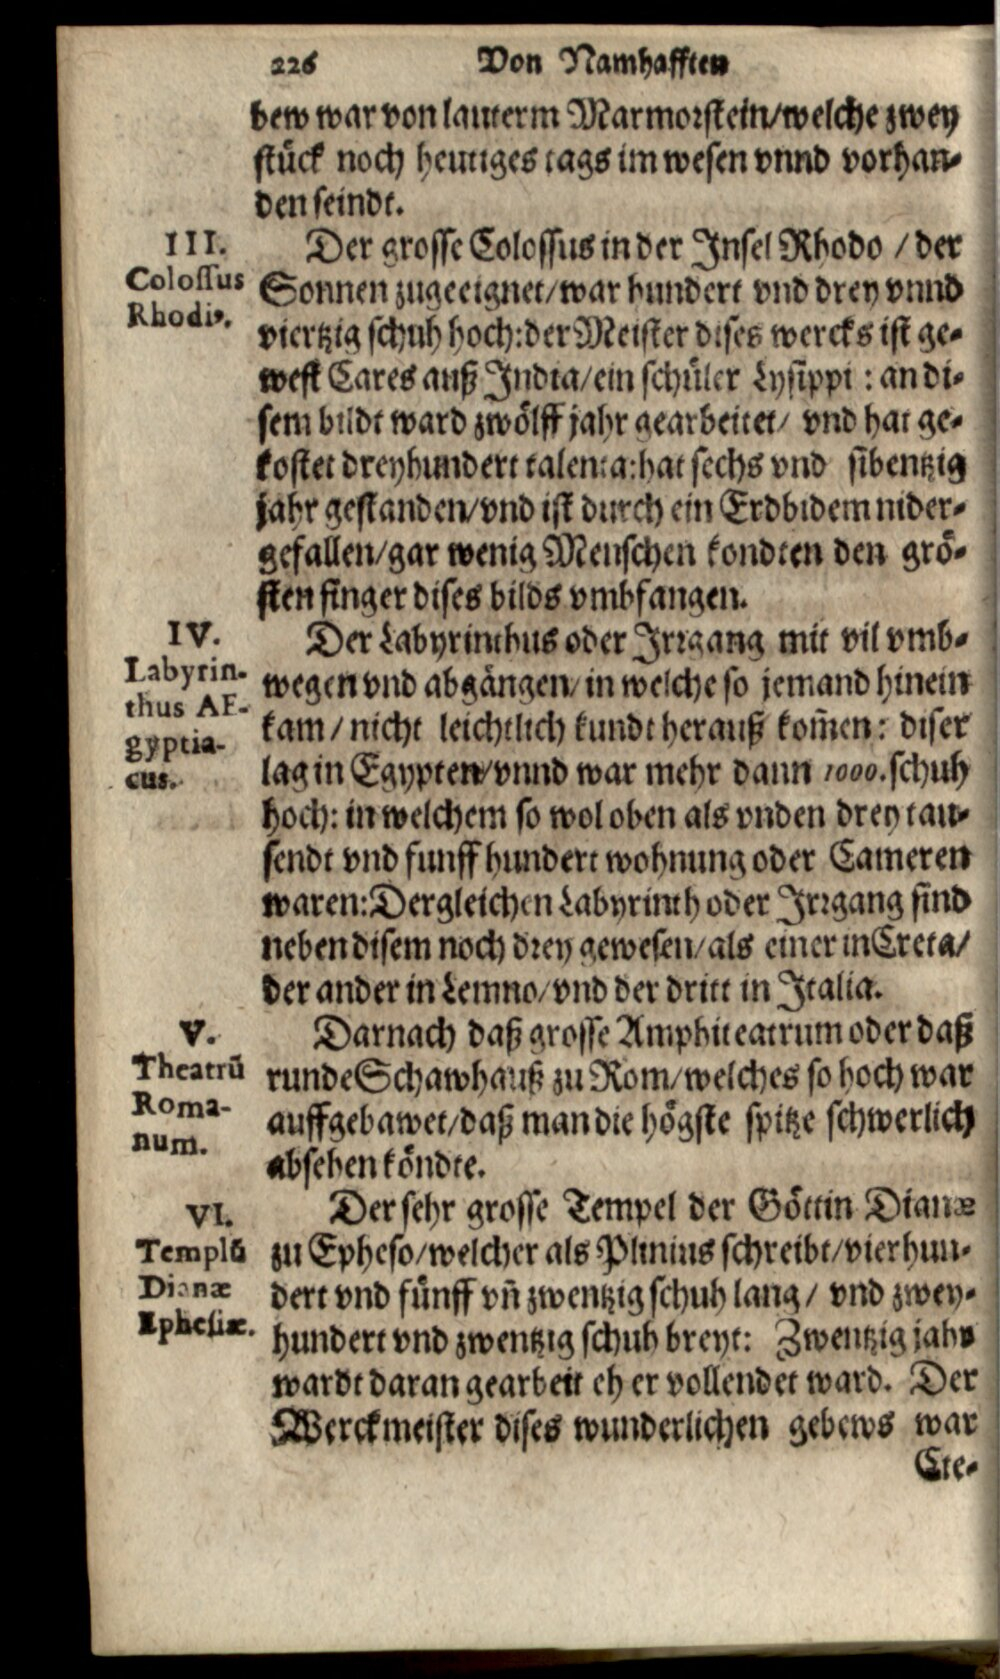 226 Von Namhafften
bew war von lauterm Marmorstein/welche zwey
stück noch heutiges tags im wesen vnnd vorhan-
den seindt.
III.
Colossus
Rhodi⁹.
Der grosse Colossus in der Insel Rhodo / der
Sonnen zugeeignet/war hundert vnd drey vnnd
viertzig schuh hoch: der Meister dises wercks ist ge-
west Cares auß India/ein schüler Lysippi : an di-
sem bildt ward zwölff jahr gearbeitet/ vnd hat ge-
kostet dreyhundert talenta: hat sechs vnd sibentzig
jahr gestanden/vnd ist durch ein Erdbidem nider-
gefallen/gar wenig Menschen kondten den grö-
sten finger dises bilds vmbfangen.
IV.
Labyrin-
thus AE-
gyptia-
cus.
Der Labyrinthus oder Irrgang mit vil vmb-
wegen vnd abgängen/ in welche so jemand hinein
kam / nicht leichtlich kundt herauß kom̃en: diser
lag in Egypten/vnnd war mehr dann 1000. schuh
hoch: in welchem so wol oben als vnden drey tau-
sendt vnd funff hundert wohnung oder Cameren
waren: Dergleichen Labyrinth oder Irrgang sind
neben disem noch drey gewesen/als einer in Creta/
der ander in Lemno/vnd der dritt in Italia.
V.
Theatrū
Roma-
num.
Darnach daß grosse Amphiteatrum oder daß
runde Schawhauß zu Rom/welches so hoch war
auffgebawet/daß man die högste spitze schwerlich
absehen köndte.
VI.
Templū
Dianæ
Ephesiæ.
Der sehr grosse Tempel der Göttin Dianæ
zu Epheso/welcher als Plinius schreibt/vierhun-
dert vnd fünff vñ zwentzig schuh lang / vnd zwey-
hundert vnd zwentzig schuh breyt: Zwentzig jahr
wardt daran gearbeit eh er vollendet ward. Der
Werckmeister dises wunderlichen gebews war
Cte-